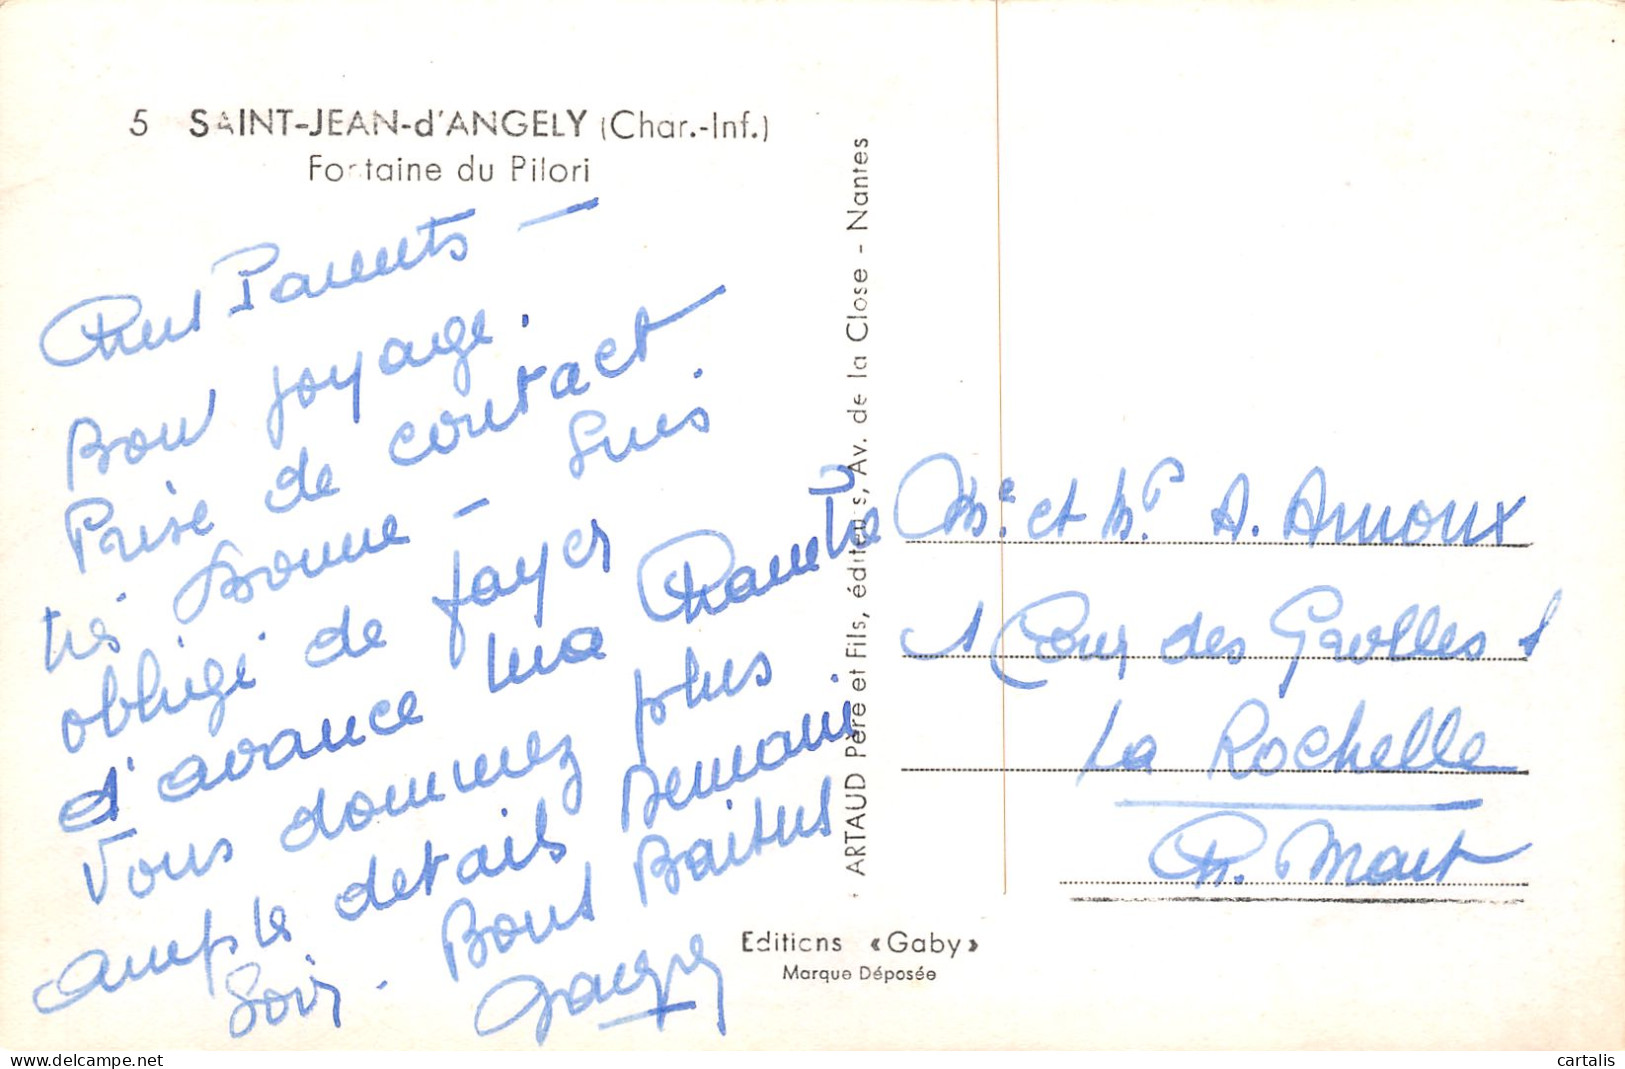 5 SAINT-JEAN-d'ANGELY (Char.-Inf.)
Fontaine du Pilori
Chers Parents —
Bon voyage.
Prise de contact
très bonne — suis
obligé de payer
d'avance ma chambre
Vous donnerez plus
ample détails Demain
Soir. Bons Baisers
Jacques
ARTAUD Père et Fils, éditeurs, Av. de la Close - Nantes
Editions «Gaby»
Marque Déposée
Mr et Me A. Arnoux
1 Cour des Grolles 1
La Rochelle
Ch. Marit
cartalis